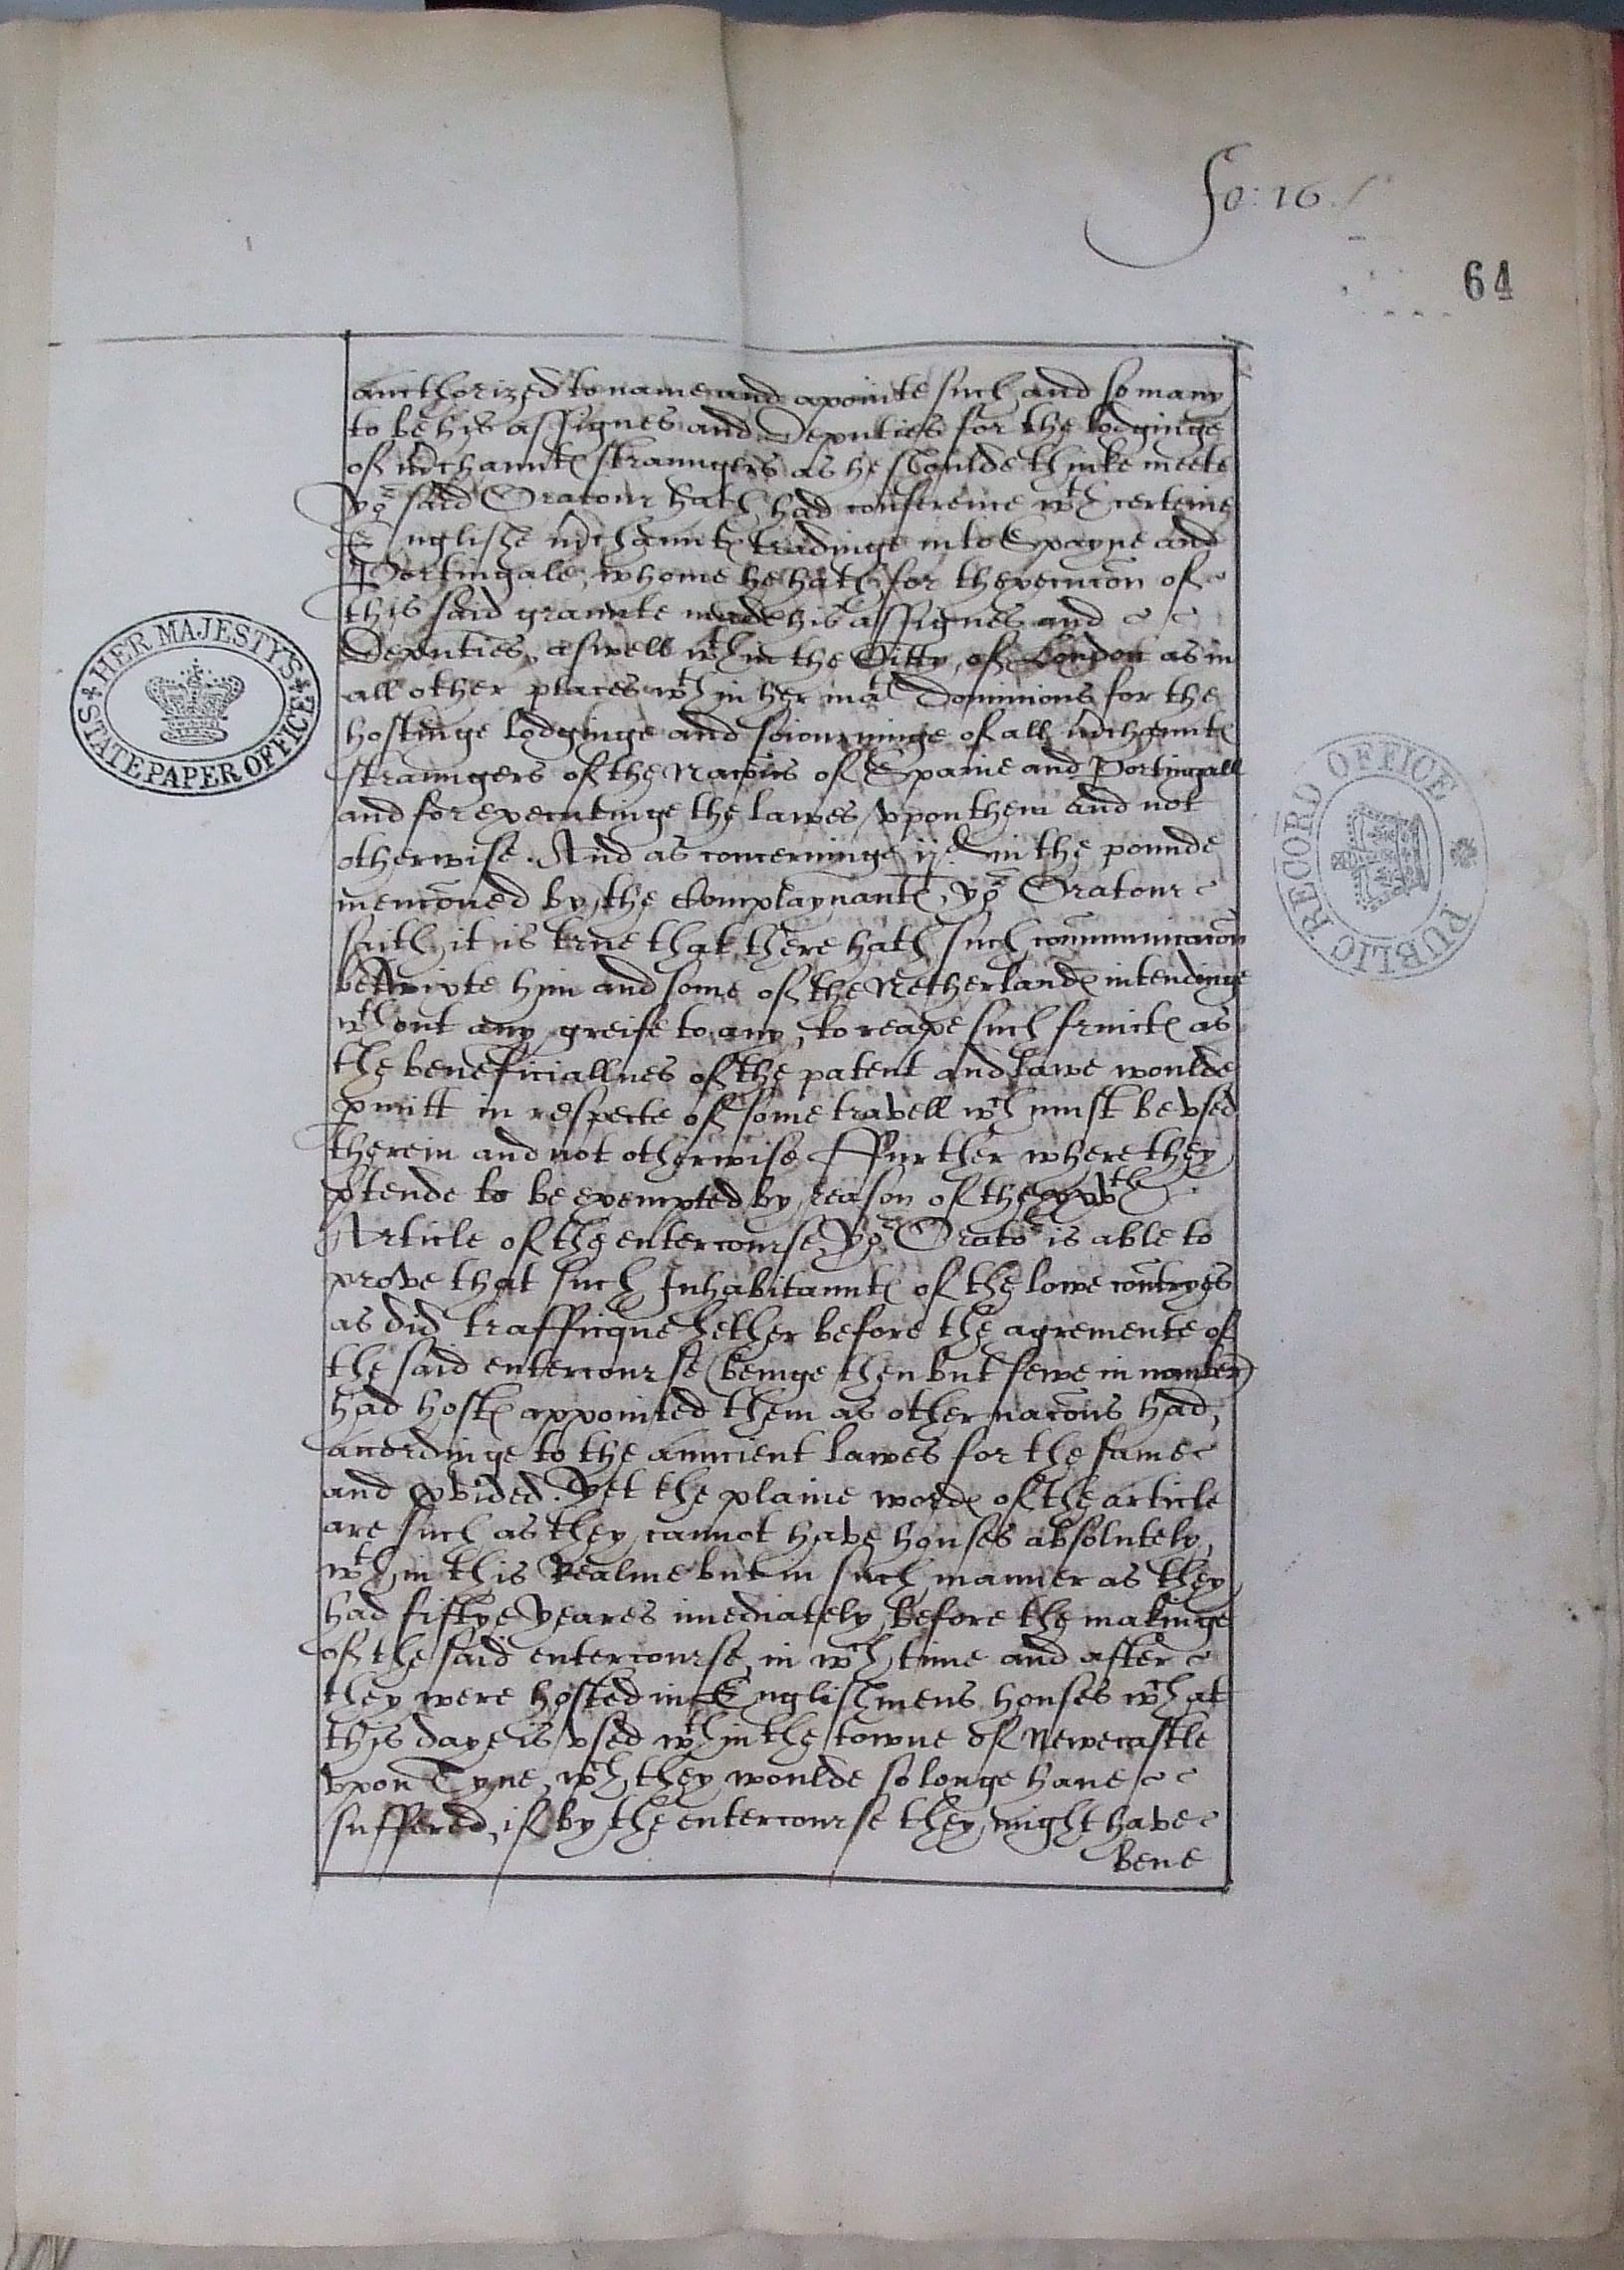 fo: 16.
64
aucthorized to name and apointe such and so many
to be his assignes and Deputies for the lodginge
of m̃chauntꝭ straungers as he shoulde thinke meete
Yor said Oratour hath had conference wth certeine
Englishe m̃chauntꝭ tradinge into Spayne and
Portingale, whome he hath for thexecucõn of
this said graunte made his assignes and
Deputies, aswell wthin the Citty of London as in
all other places wthin her mats Dominions for the
hostinge lodginge and soiourninge of all m̃chauntꝭ
straungers of the nacõns of Spaine and Portingall
and for executinge the lawes vpon them and not
otherwise. And as concerninge ijd in the pounde
mencõned by the Complaynantꝭ, yor Oratour
saith it is true that there hath such cõmunicacõn
betwixte him and some of the Netherlandꝭ intendinge
wthout any greife to any, to reape such fruictꝭ as
the beneficiallnes of the patent and lawe woulde
ꝑmitt in respecte of some travell wch must be vsed
therein and not otherwise Further where they
p̃tende to be exempted by reason of the xxvth
Article of the entercourse, Yor Orator is able to
prove that such Inhabitauntꝭ of the lowe cõntryes
as did trafficque hether before the agremente of
the said entercourse (beinge then but fewe in nomber)
had hostꝭ appointed them as other nacõns had,
accordinge to the auncient lawes for the same
and ꝓvided. Yet the plaine wordꝭ of the article
are such as they cannot have houses absolutely,
wthin this Realme but in such manner as they
had fiftye yeares imediately before the makinge
of the said entercourse, in wch time and after
they were hosted in Englishmens houses wch at
this daye is vsed wthin the towne of Newecastle
vpon Tyne, wch they woulde so longe haue
suffered, if by the entercourse they might have
bene
HER MAJESTY'S
STATE PAPER OFFICE
PUBLIC RECORD OFFICE